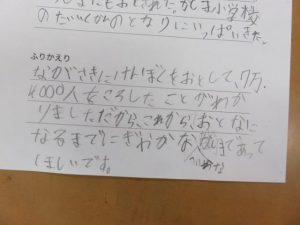 にもおとされた。かしま小学校
のたいくかんのとなりにいっぱいきた。
ふりかえり
ながさきにげんばくをおとして、7万
4000人をころしたことがわか
りましただから、これから、おとなに
なるまでにぎおかな まであって
ほしいです。